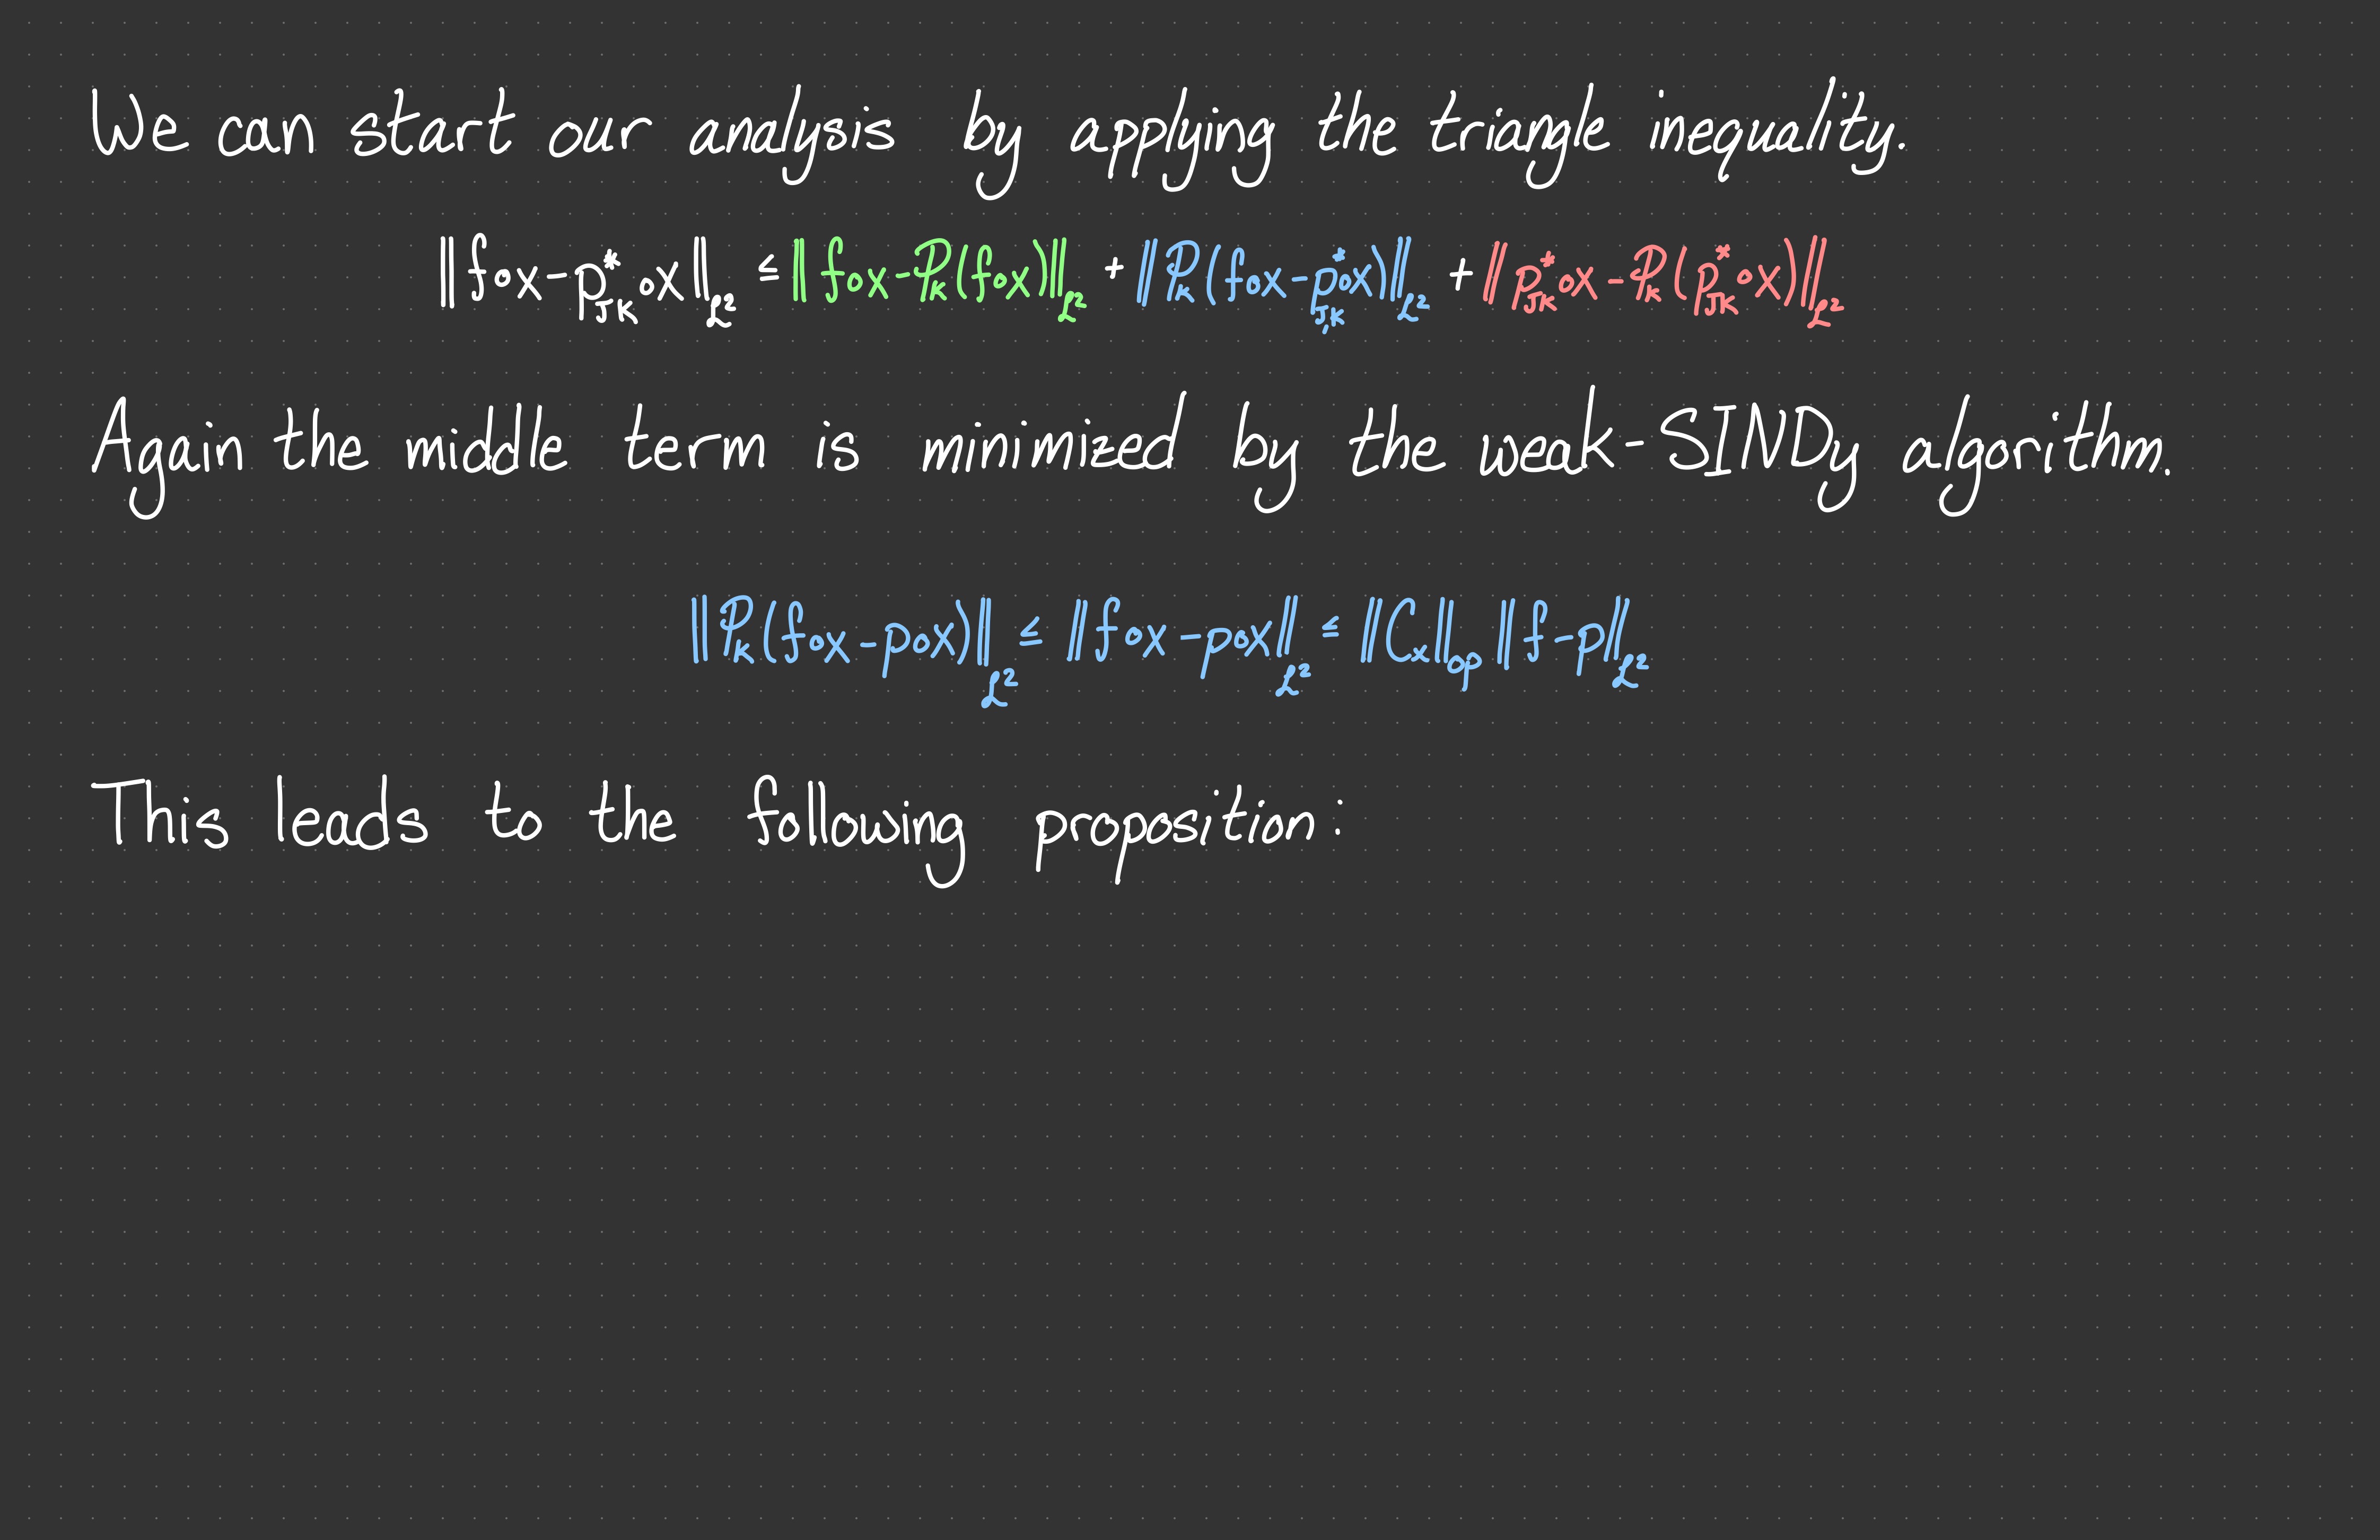 We can start our analysis by applying the triangle inequality.
‖f∘x − p*_{J,K}∘x‖_{L²} ≤ ‖f∘x − P_K(f∘x)‖_{L²} + ‖P_K(f∘x − p*_{J,K}∘x)‖_{L²} + ‖p*_{J,K}∘x − P_K(p*_{J,K}∘x)‖_{L²}
Again the middle term is minimized by the weak-SINDy algorithm.
‖P_K(f∘x − p∘x)‖_{L²} ≤ ‖f∘x − p∘x‖_{L²} ≤ ‖C_x‖_{op} ‖f − p‖_{L²}
This leads to the following proposition: